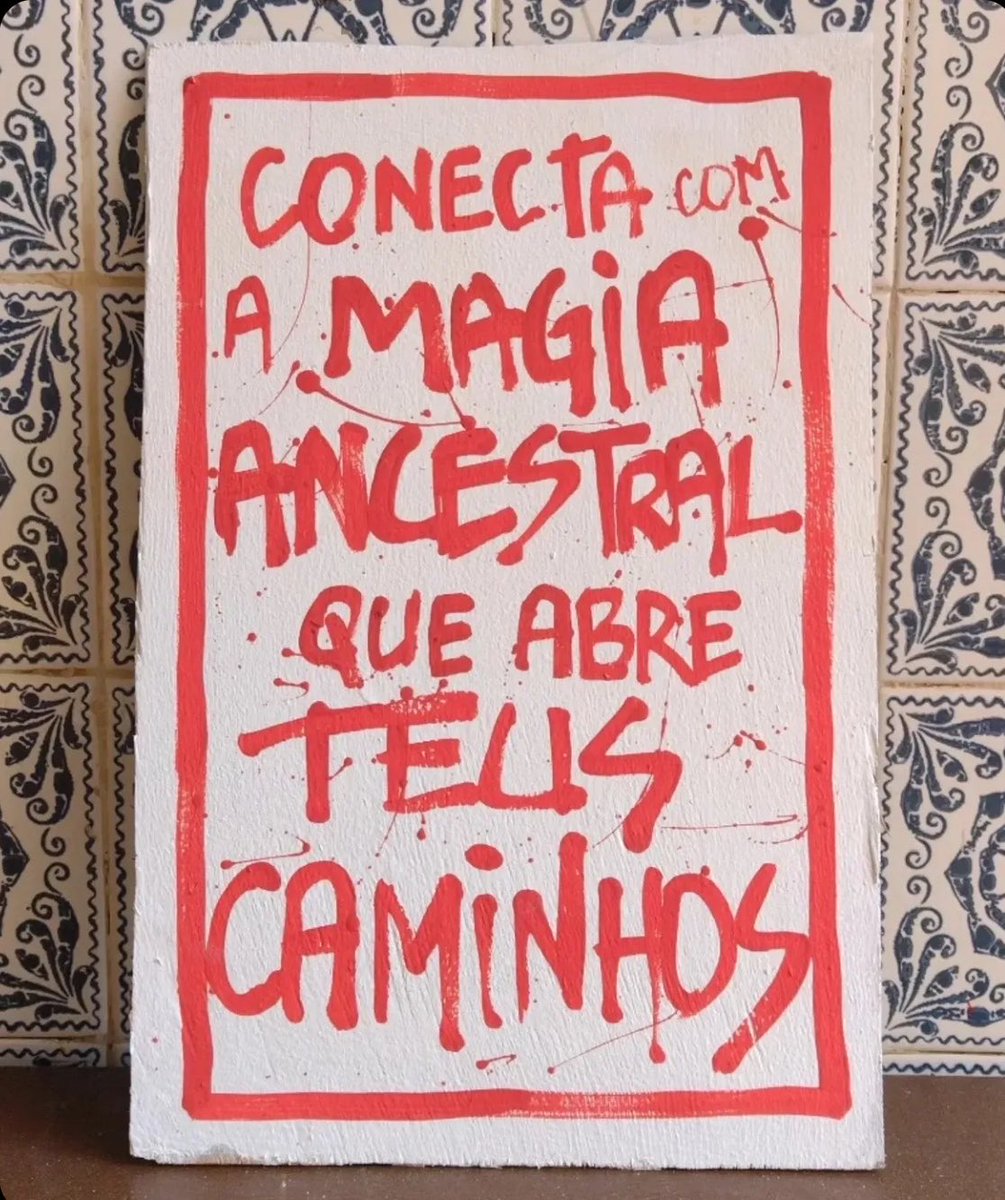 CONECTA COM
A MAGIA
ANCESTRAL
QUE ABRE
TEUS
CAMINHOS